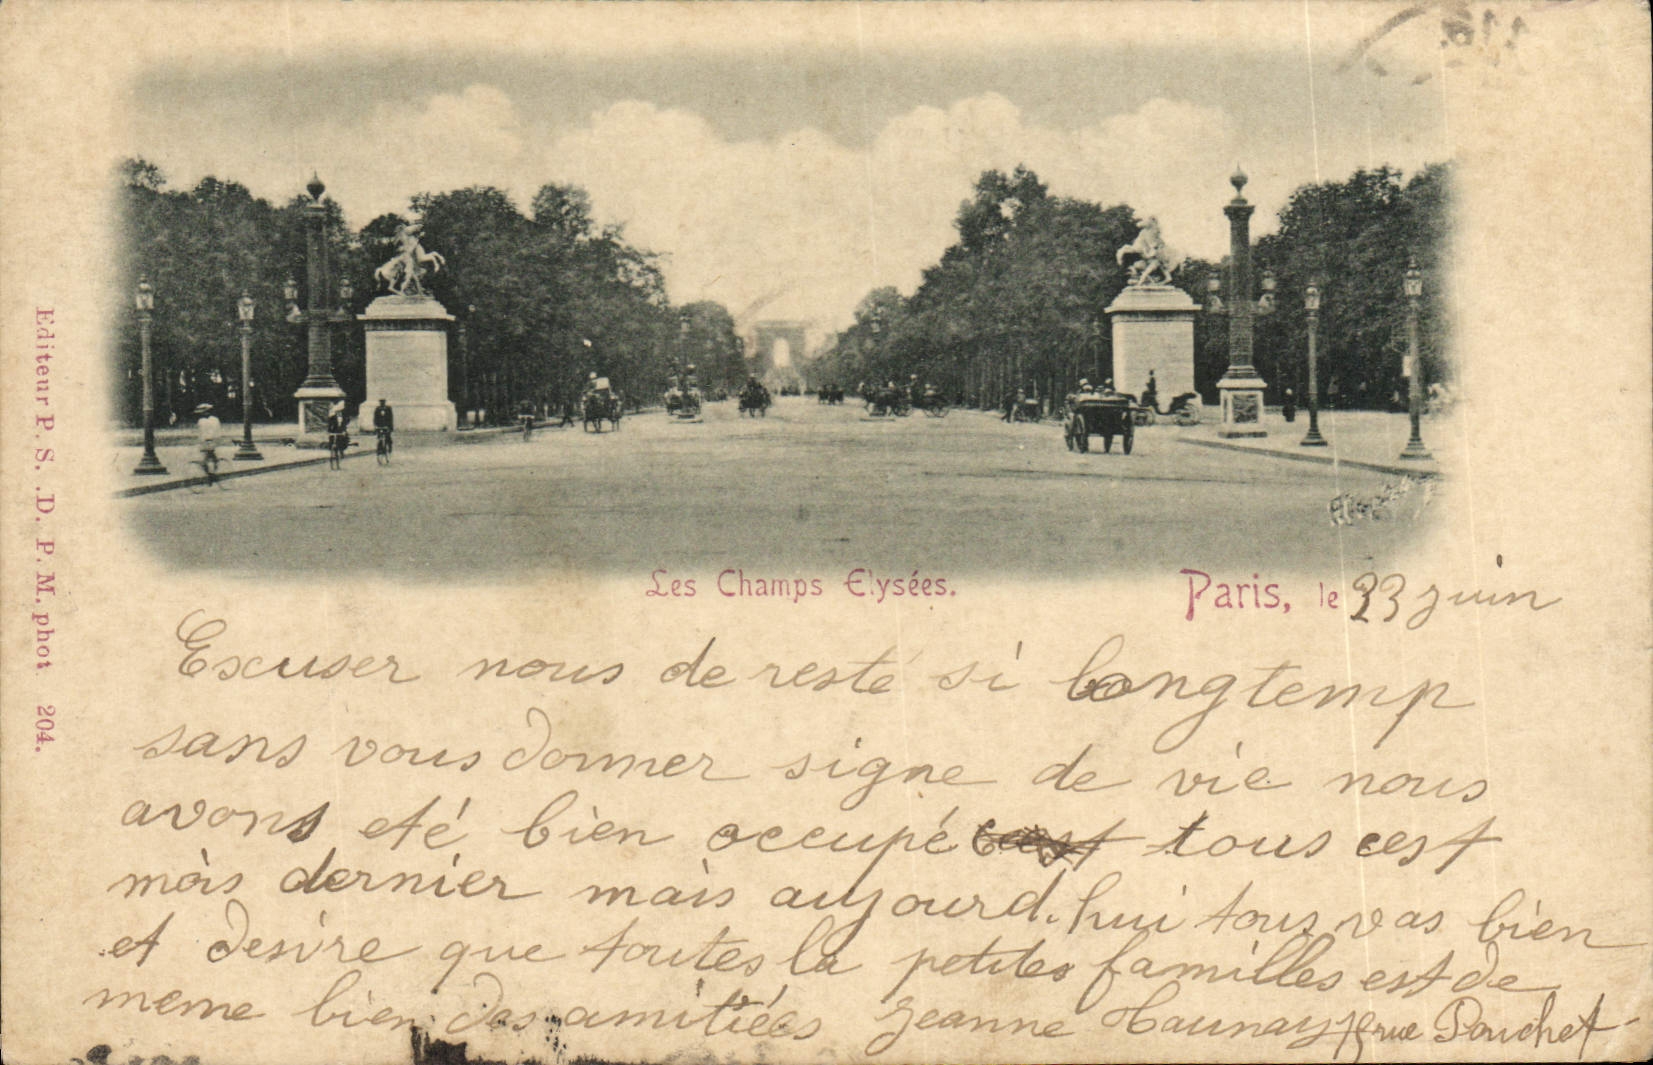 Editeur P. S. .D. P. M. phot 204.
Les Champs Elysées.
Paris, le 23 juin
Excuser nous de resté si longtemp
sans vous donner signe de vie nous
avons eté bien occupé tous cest
mois dernier mais aujourd'hui tous vas bien
et desire que toutes la petites familles est de
meme bien des amitiées Jeanne Haunay rue Pouchet